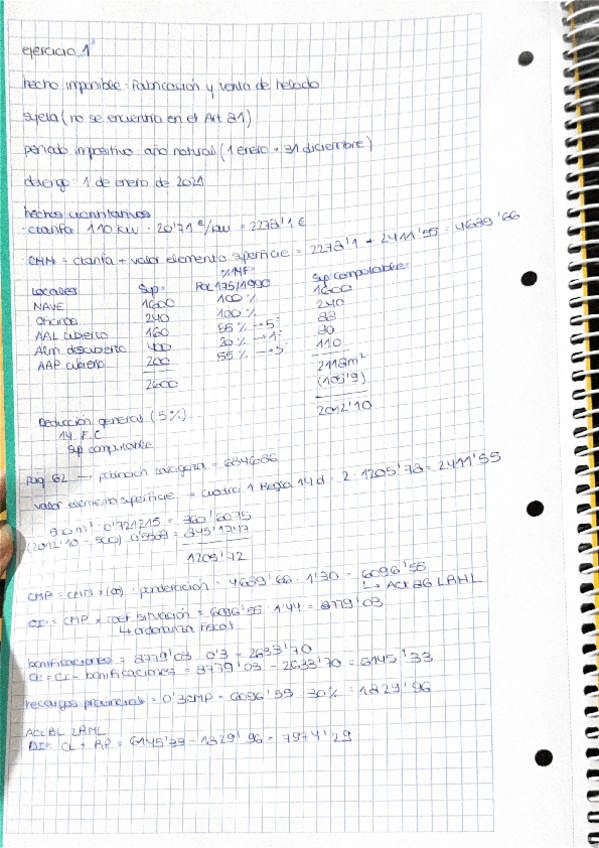 ejercicio 1
hecho imponible: Fabricación y venta de helado
sujeta (no se encuentra en el Art 81)
periodo impositivo: año natural (1 enero - 31 diciembre)
devengo: 1 de enero de 2021
hechos cuantitativos
· ctarifa 110 kw · 20'71 €/kw = 2278'1 €
CMM = ctarifa + valor elemento superficie = 2278'1 + 2411'55 = 4689'66
Locales Sup. % 14F. Rdl 1175/1990 Sup computable:
NAVE 1600 100% 1600
Oficinas 240 100% 240
AAL cubierto 160 55% → 5: 88
Alm descubierto 400 20% → 1: 80
AAP cubierto 200 55% → 5: 110
2600 2118m²
(105'9)
2012'10
Deducción general (5%)
14. F. C
Sup computable
pag 82 → población zaragoza = 684686
valor elemento superficie → cuadro 1 Regla 14 d = 2 · 1205'78 = 2411'55
500m² · 0'721215 = 360'6075
(2012'10 - 500) · 0'5589 = 845'1717
1205'72
CMP = CMM x coef. ponderación = 4689'66 · 1'30 = 6096'55
↳ Act 86 LRHL
CI = CMP x coef situación = 6096'55 · 1'44 = 8779'03
↳ ordenanza fiscal
bonificaciones = 8779'03 · 0'3 = 2633'70
CL = CI - bonificaciones = 8779'03 - 2633'70 = 6145'33
recargos provinciales = 0'3 CMP = 6096'55 · 30% = 1829'96
DEF CL + RP = 6145'33 - 1829'96 = 7974'29